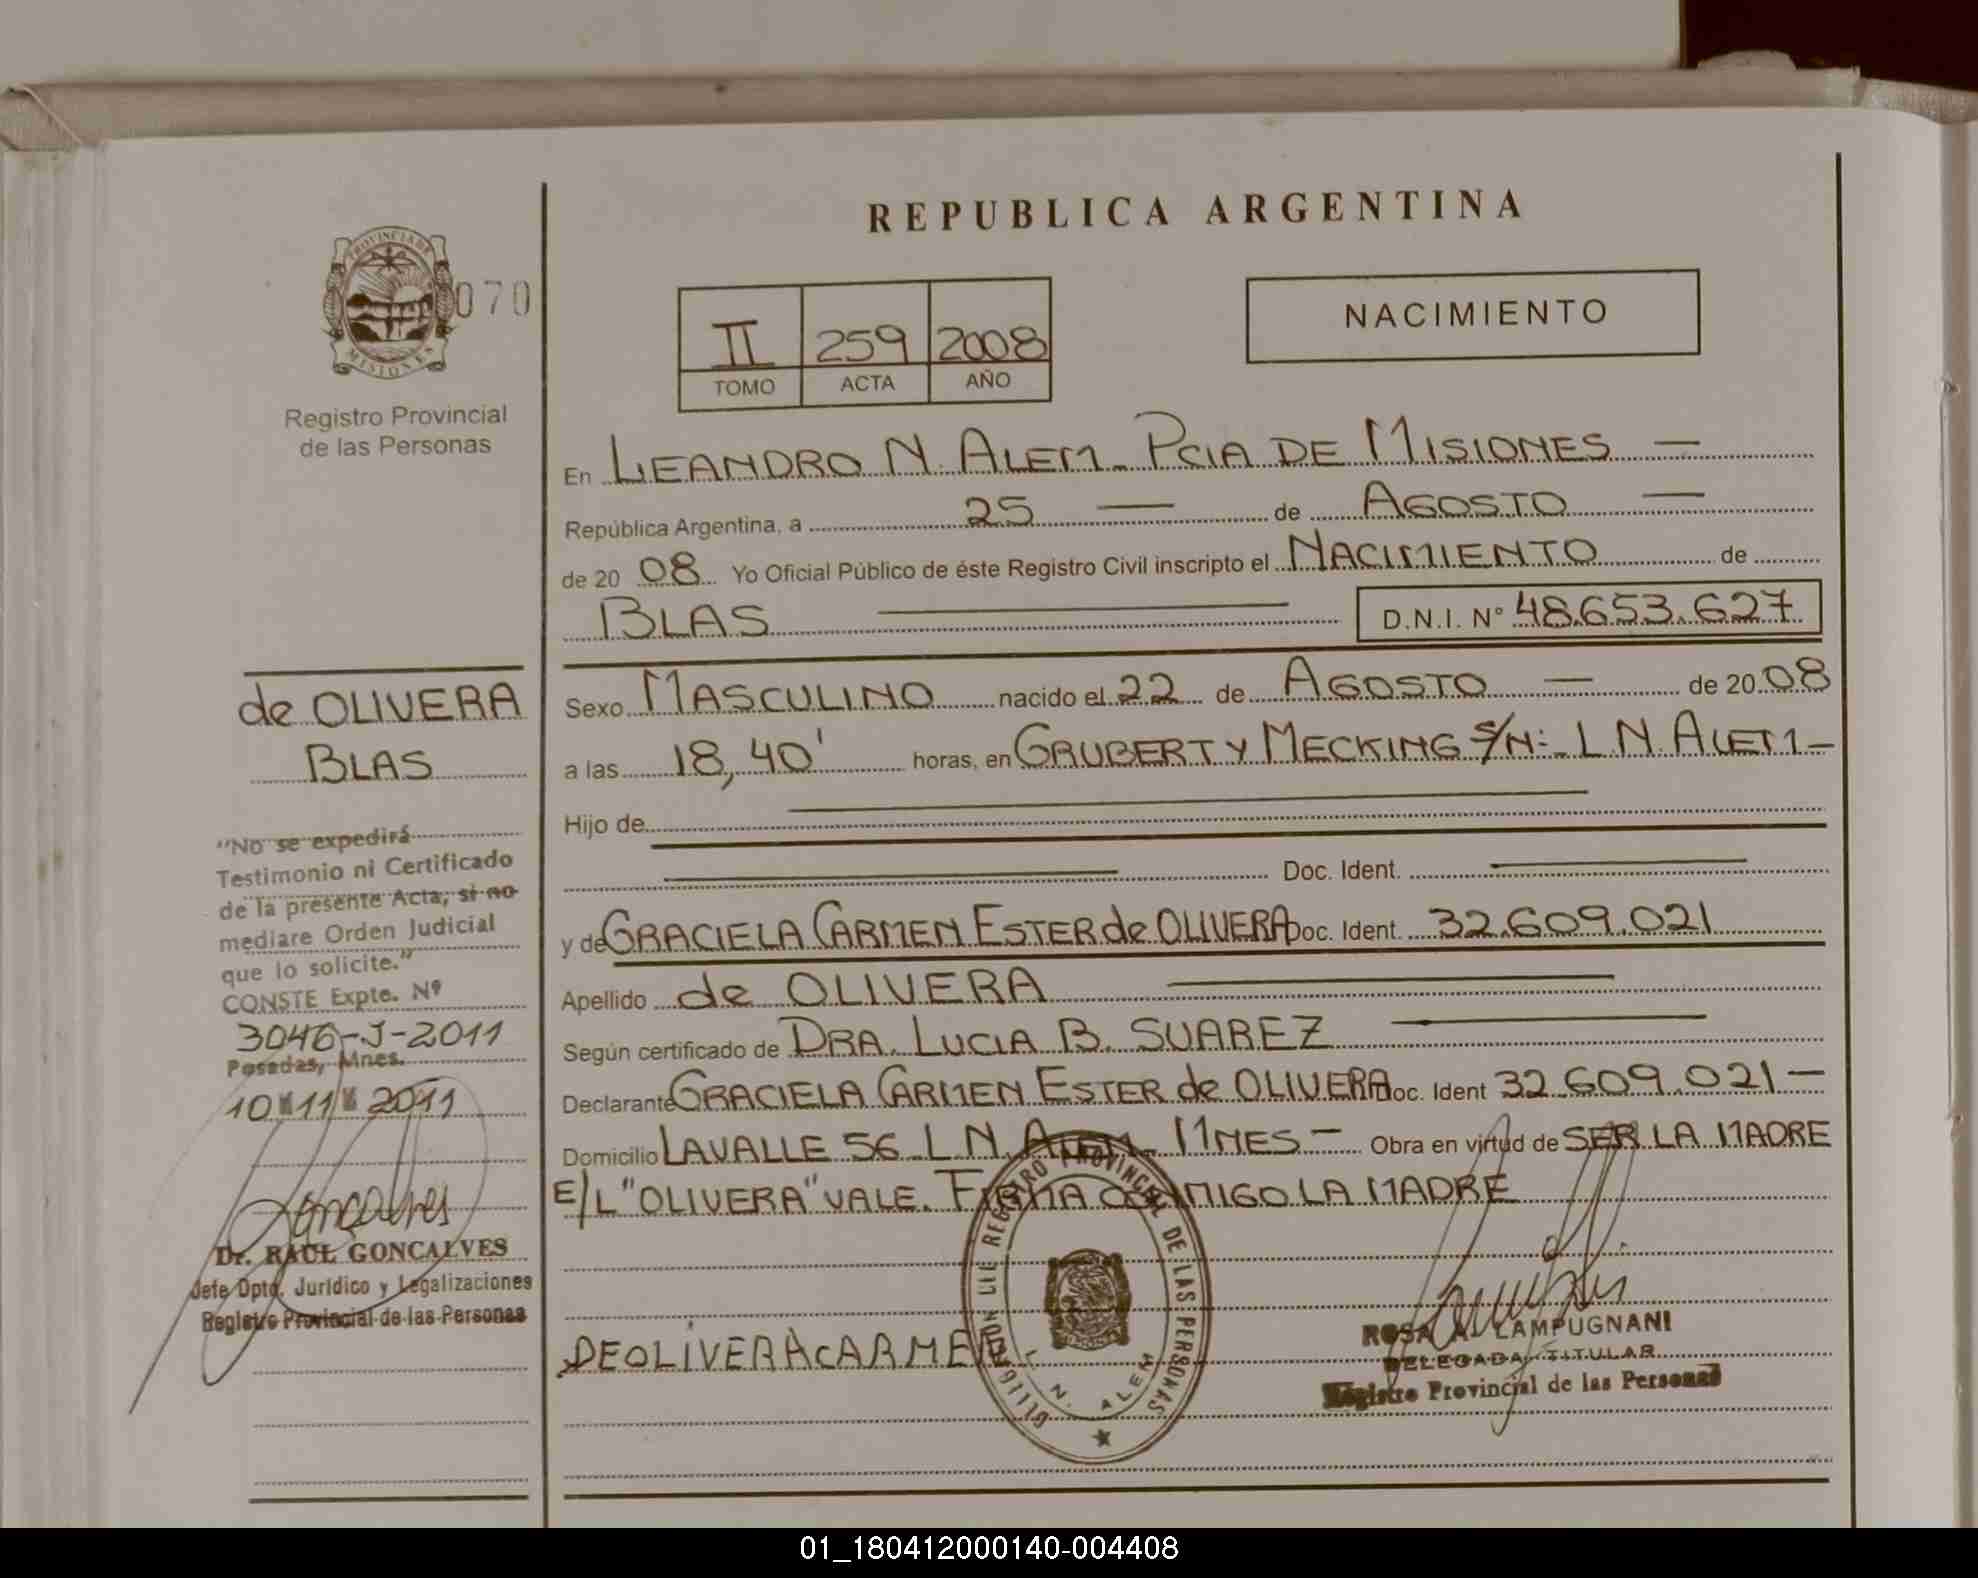 REPUBLICA ARGENTINA
PROVINCIA DE
MISIONES
070
Registro Provincial
de las Personas
II 259 2008
TOMO ACTA AÑO
NACIMIENTO
En LEANDRO N. ALEM - PCIA DE MISIONES —
República Argentina, a 25 — de AGOSTO —
de 20 08 Yo Oficial Público de éste Registro Civil inscripto el NACIMIENTO de
BLAS
D.N.I. N° 48.653.627
Sexo MASCULINO nacido el 22 de AGOSTO — de 20 08
a las 18,40' horas, en GRUBERT Y MECKING S/N: - L N. ALEM -
Hijo de
Doc. Ident.
y de GRACIELA CARMEN ESTER de OLIVERA Doc. Ident. 32.609.021
Apellido de OLIVERA
Según certificado de DRA. LUCIA B. SUAREZ
Declarante GRACIELA CARMEN ESTER de OLIVERA Doc. Ident 32.609.021 -
Domicilio LAVALLE 56 - L N. ALEM - MNES - Obra en virtud de SER LA MADRE
E/L "OLIVERA" VALE. FIRMA CONMIGO LA MADRE
DEOLIVERACARMEN
REGISTRO PROVINCIAL DE LAS PERSONAS
L. N. ALEM
ROSA A. LAMPUGNANI
DELEGADA TITULAR
Registro Provincial de las Personas
de OLIVERA
BLAS
"No se expedirá
Testimonio ni Certificado
de la presente Acta, si no
mediare Orden Judicial
que lo solicite."
CONSTE Expte. Nº
3046-J-2011
Posadas, Mnes.
10 11 2011
Goncalves
Dr. RAUL GONCALVES
Jefe Dpto. Jurídico y Legalizaciones
Registro Provincial de las Personas
01_180412000140-004408